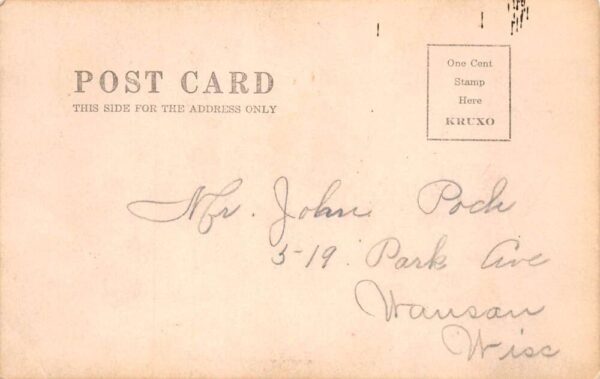 POST CARD
THIS SIDE FOR THE ADDRESS ONLY
One Cent
Stamp
Here
KRUXO
Mr. John Poch
519 Park Ave
Wausau
Wisc